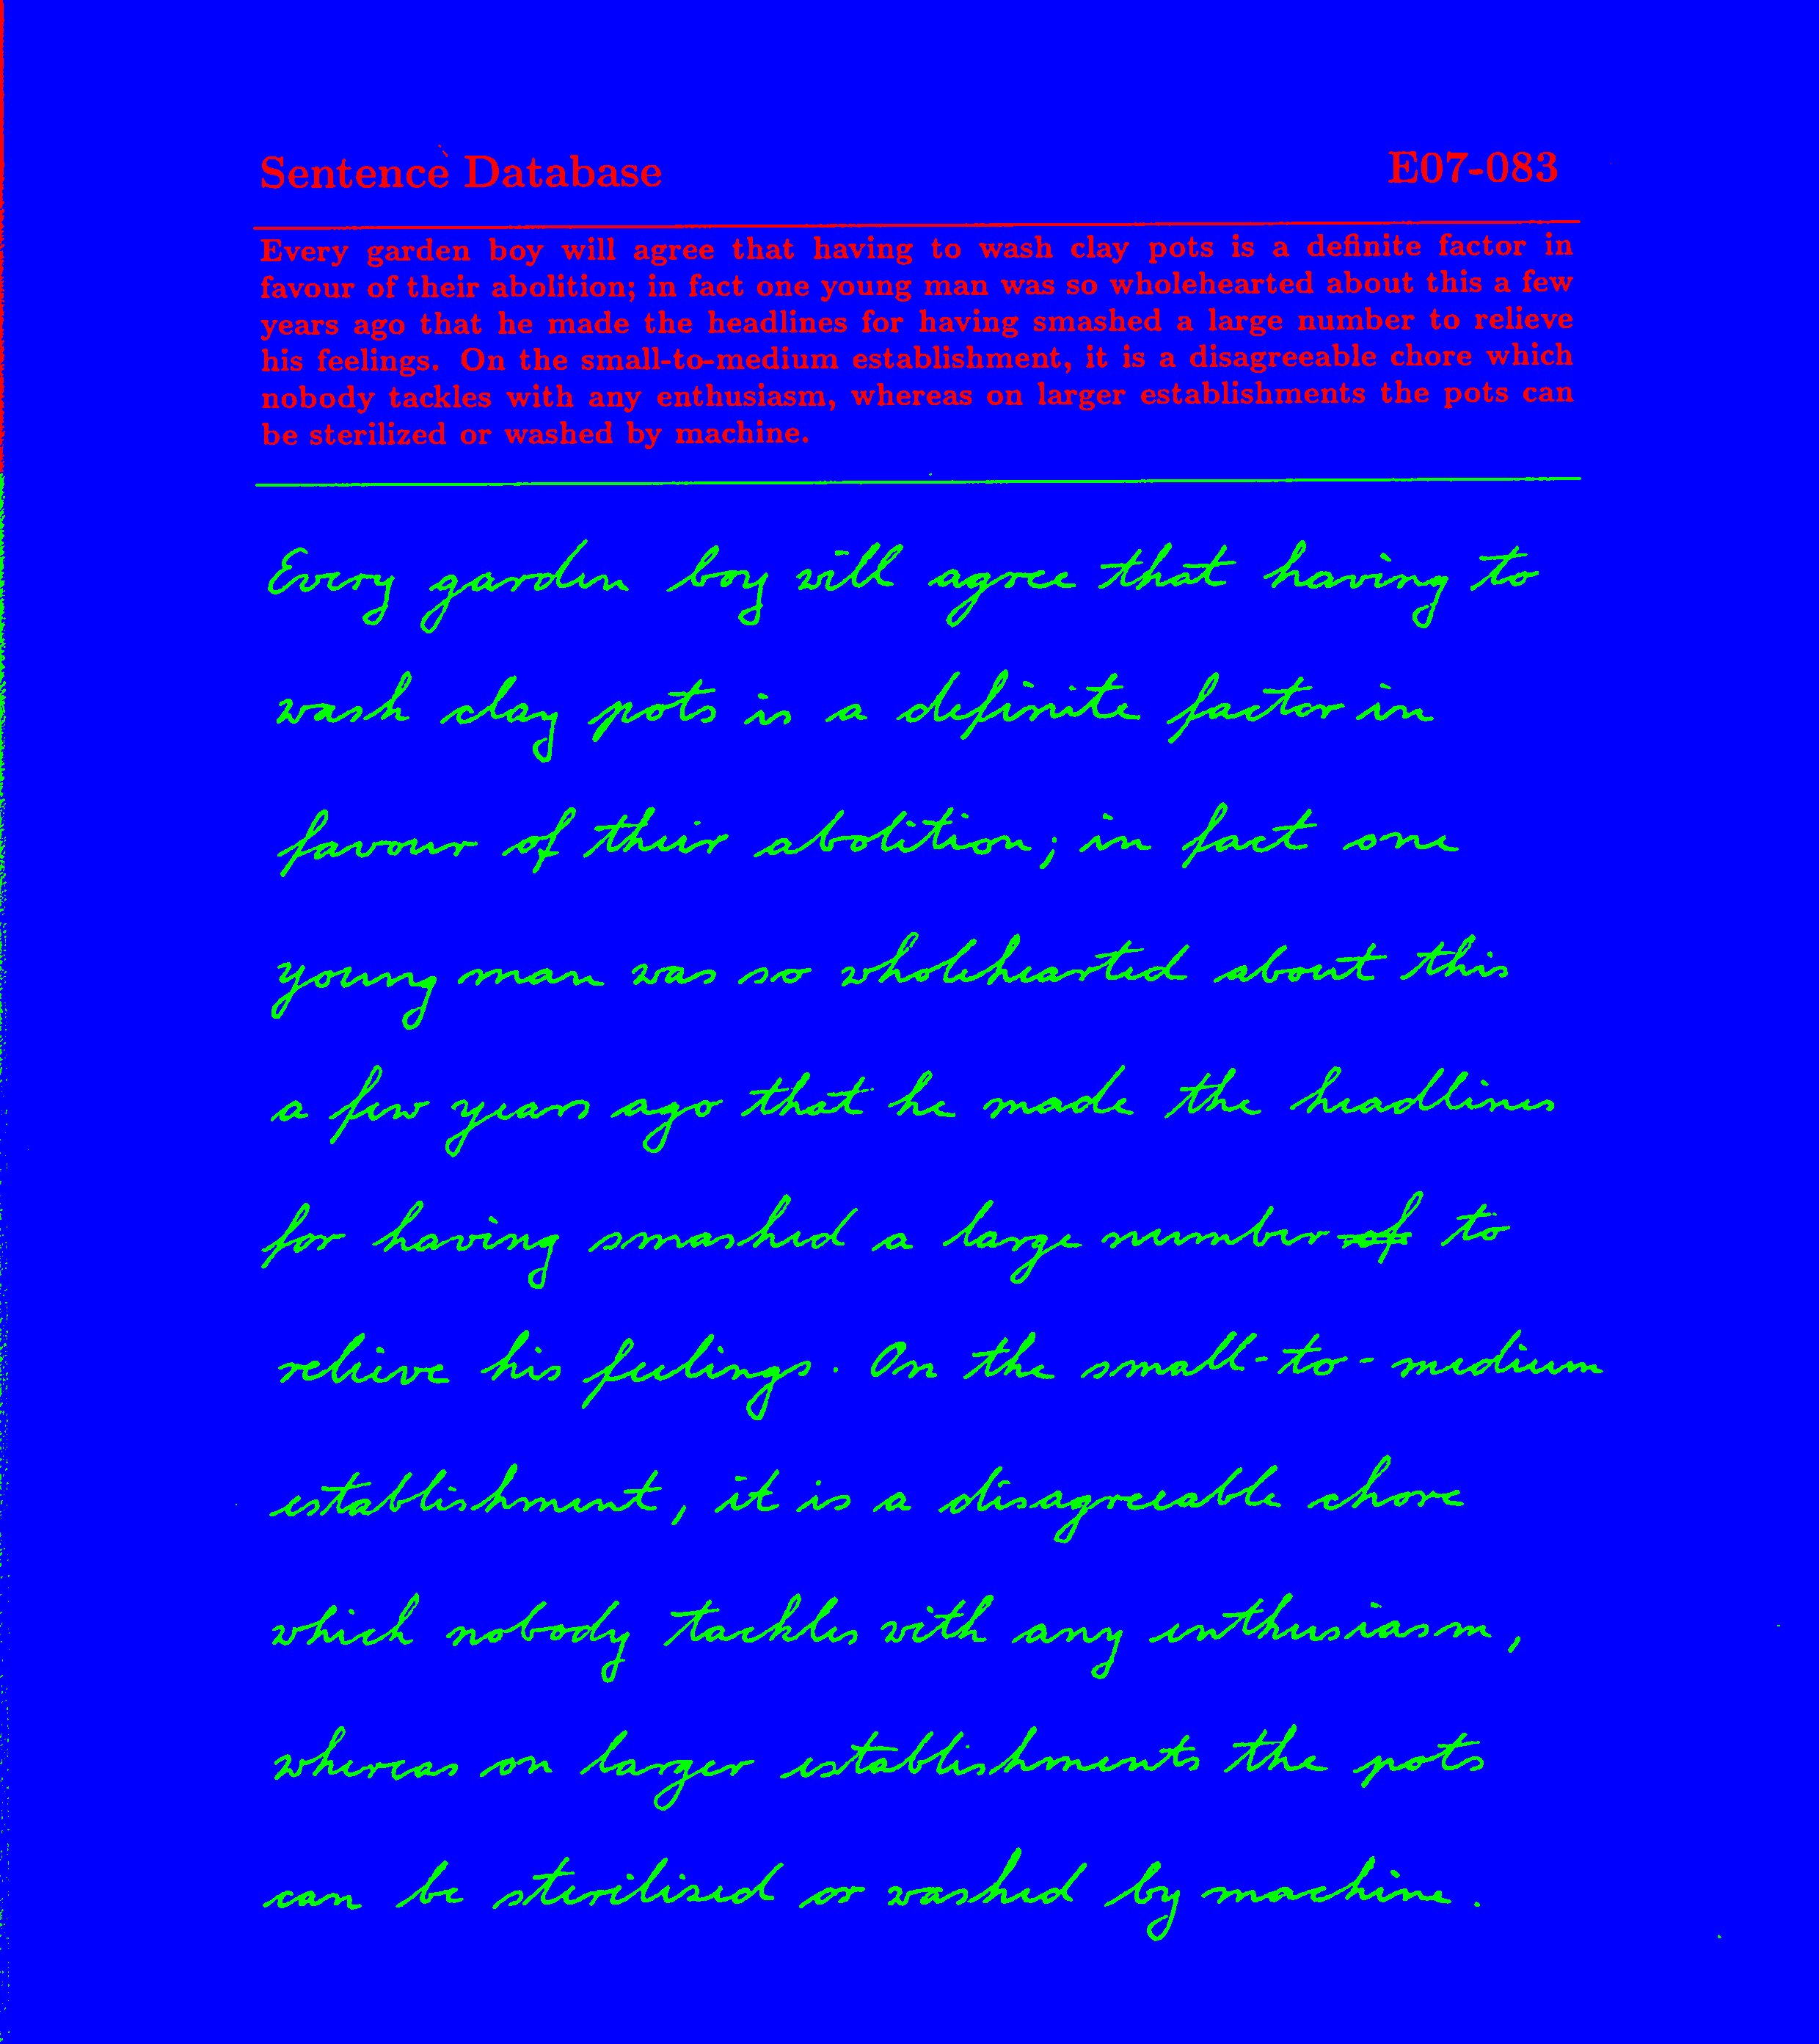 Sentence Database E07-083
Every garden boy will agree that having to wash clay pots is a definite factor in
favour of their abolition; in fact one young man was so wholehearted about this a few
years ago that he made the headlines for having smashed a large number to relieve
his feelings. On the small-to-medium establishment, it is a disagreeable chore which
nobody tackles with any enthusiasm, whereas on larger establishments the pots can
be sterilized or washed by machine.
Every garden boy will agree that having to
wash clay pots is a definite factor in
favour of their abolition; in fact one
young man was so wholehearted about this
a few years ago that he made the headlines
for having smashed a large number of to
relieve his feelings. On the small-to-medium
establishment, it is a disagreeable chore
which nobody tackles with any enthusiasm,
whereas on larger establishments the pots
can be sterilised or washed by machine.